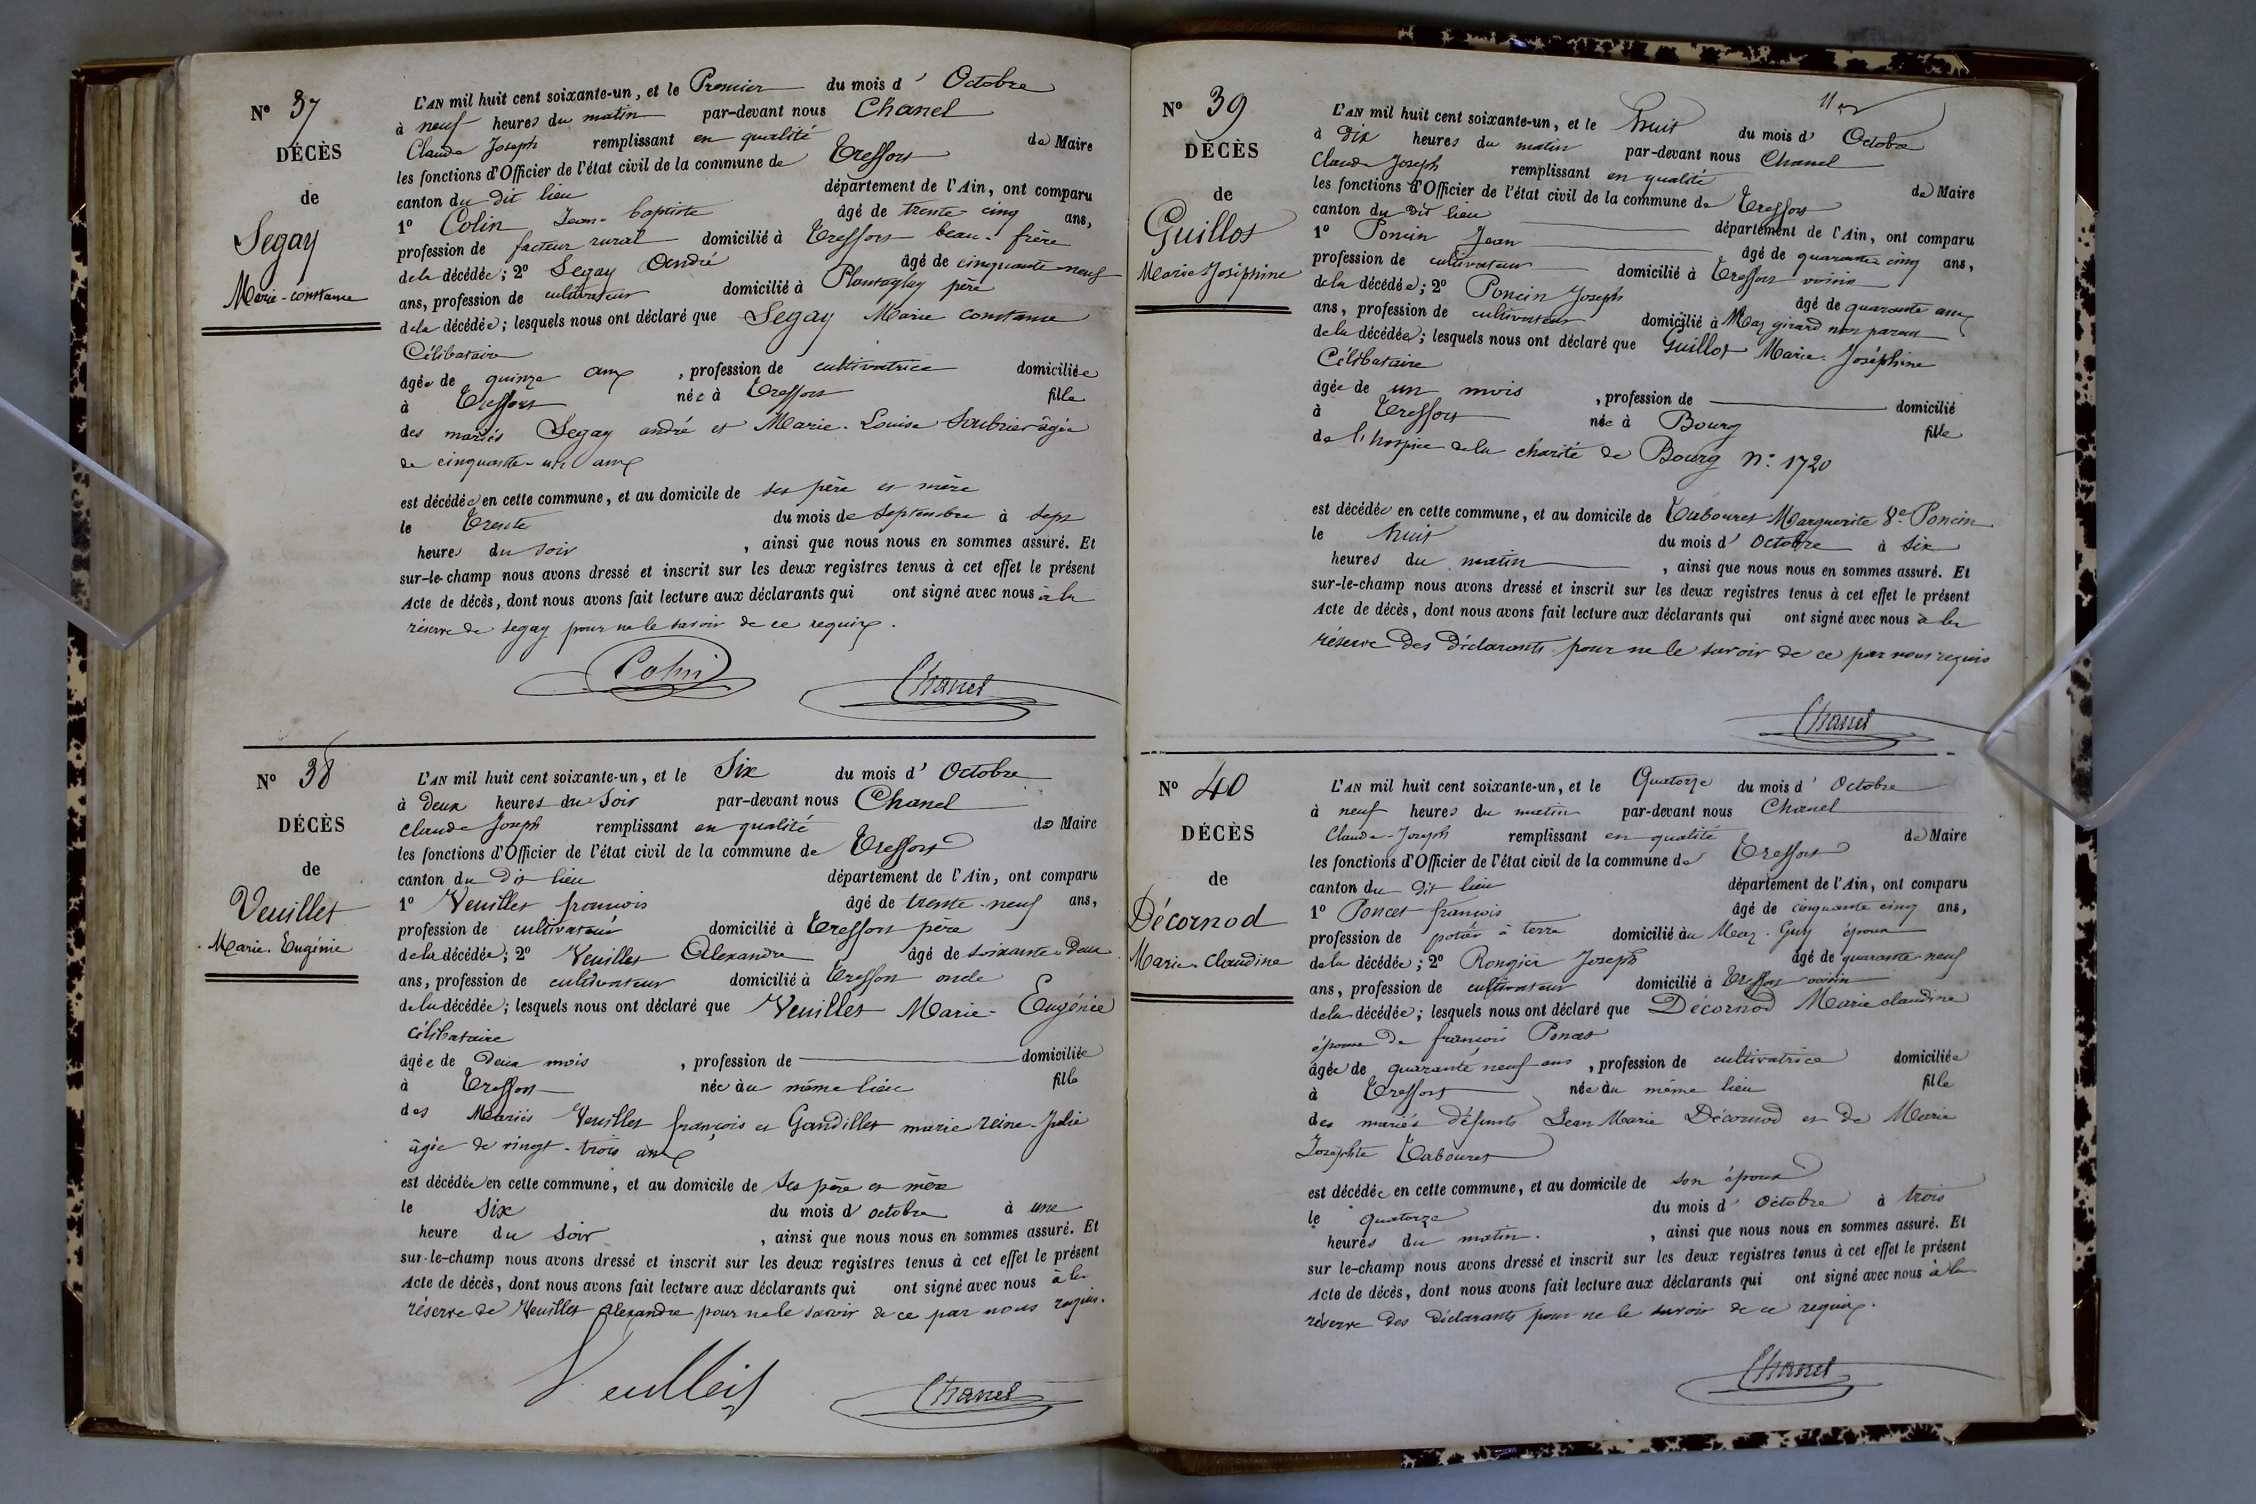 N° 37
DÉCÈS
de
Segay
Marie-constance
L'AN mil huit cent soixante-un, et le Premier du mois d' Octobre
à neuf heures du matin par-devant nous Chanel
Claude Joseph remplissant en qualité de Maire
les fonctions d'Officier de l'état civil de la commune de Treffort
canton du dit lieu département de l'Ain, ont comparu
1° Colin Jean-baptiste âgé de trente cinq ans,
profession de facteur rural domicilié à Treffort beau-frère
de la décédée; 2° Segay André âgé de cinquante neuf
ans, profession de cultivateur domicilié à Plantaglay père
de la décédée; lesquels nous ont déclaré que Segay Marie constance
Célibataire
âgée de quinze ans, profession de cultivatrice domiciliée
à Treffort née à Treffort fille
des mariés Segay andré et Marie-Louise Soubrier âgée
de cinquante-un ans
est décédée en cette commune, et au domicile de ses père et mère
le Trente du mois de Septembre à sept
heures du soir, ainsi que nous nous en sommes assuré. Et
sur-le-champ nous avons dressé et inscrit sur les deux registres tenus à cet effet le présent
Acte de décès, dont nous avons fait lecture aux déclarants qui ont signé avec nous à la
réserve de segay pour ne le savoir de ce requis.
Colin Chanel
N° 38
DÉCÈS
de
Veuillet
Marie-Eugénie
L'AN mil huit cent soixante-un, et le Six du mois d' Octobre
à Deux heures du soir par-devant nous Chanel
Claude Joseph remplissant en qualité de Maire
les fonctions d'Officier de l'état civil de la commune de Treffort
canton du dit lieu département de l'Ain, ont comparu
1° Veuillet françois âgé de trente-neuf ans,
profession de cultivateur domicilié à Treffort père
de la décédée; 2° Veuillet Alexandre âgé de soixante-Deux
ans, profession de cultivateur domicilié à Treffort oncle
de la décédée; lesquels nous ont déclaré que Veuillet Marie-Eugénie
célibataire
âgée de Deux mois, profession de domiciliée
à Treffort née au même lieu fille
des Mariés Veuillet françois et Gandillet marie reine-Julie
âgée de vingt-trois ans
est décédée en cette commune, et au domicile de ses père et mère
le Six du mois d'octobre à une
heure du soir, ainsi que nous nous en sommes assuré. Et
sur-le-champ nous avons dressé et inscrit sur les deux registres tenus à cet effet le présent
Acte de décès, dont nous avons fait lecture aux déclarants qui ont signé avec nous à la
réserve de Veuillet Alexandre pour ne le savoir de ce par nous requis.
Veuillet Chanel
N° 39
DÉCÈS
de
Guillot
Marie Joséphine
L'AN mil huit cent soixante-un, et le huit du mois d' Octobre
à Dix heures du matin par-devant nous Chanel
Claude Joseph remplissant en qualité de Maire
les fonctions d'Officier de l'état civil de la commune de Treffort
canton du dit lieu département de l'Ain, ont comparu
1° Poncin Jean âgé de quarante cinq ans,
profession de cultivateur domicilié à Treffort voisin
de la décédée; 2° Poncin Joseph âgé de quarante ans
ans, profession de cultivateur domicilié à Maz girard non parent
de la décédée; lesquels nous ont déclaré que Guillot Marie-Joséphine
Célibataire
âgée de un mois, profession de domicilié
à Treffort née à Bourg fille
de l'hospice de la charité de Bourg N° 1720
est décédée en cette commune, et au domicile de Tabouret Marguerite Ve Poncin
le huit du mois d'octobre à six
heures du matin, ainsi que nous nous en sommes assuré. Et
sur-le-champ nous avons dressé et inscrit sur les deux registres tenus à cet effet le présent
Acte de décès, dont nous avons fait lecture aux déclarants qui ont signé avec nous à la
réserve des Déclarants pour ne le savoir de ce par nous requis
Chanel
N° 40
DÉCÈS
de
Décornod
Marie-claudine
L'AN mil huit cent soixante-un, et le Quatorze du mois d' Octobre
à neuf heures du matin par-devant nous Chanel
Claude-Joseph remplissant en qualité de Maire
les fonctions d'Officier de l'état civil de la commune de Treffort
canton du dit lieu département de l'Ain, ont comparu
1° Poncet françois âgé de cinquante cinq ans,
profession de potier à terre domicilié au Maz-Guy époux
de la décédée; 2° Rongier Joseph âgé de quarante-neuf
ans, profession de cultivateur domicilié à Treffort voisin
de la décédée; lesquels nous ont déclaré que Décornod Marie claudine
épouse de françois Poncet
âgée de quarante neuf ans, profession de cultivatrice domiciliée
à Treffort née au même lieu fille
des mariés défunts Jean Marie Décornod et de Marie
Josephte Tabouret
est décédée en cette commune, et au domicile de son époux
le quatorze du mois d' octobre à trois
heures du matin., ainsi que nous nous en sommes assuré. Et
sur le-champ nous avons dressé et inscrit sur les deux registres tenus à cet effet le présent
Acte de décès, dont nous avons fait lecture aux déclarants qui ont signé avec nous à la
réserve des Déclarants pour ne le savoir de ce requis.
Chanel